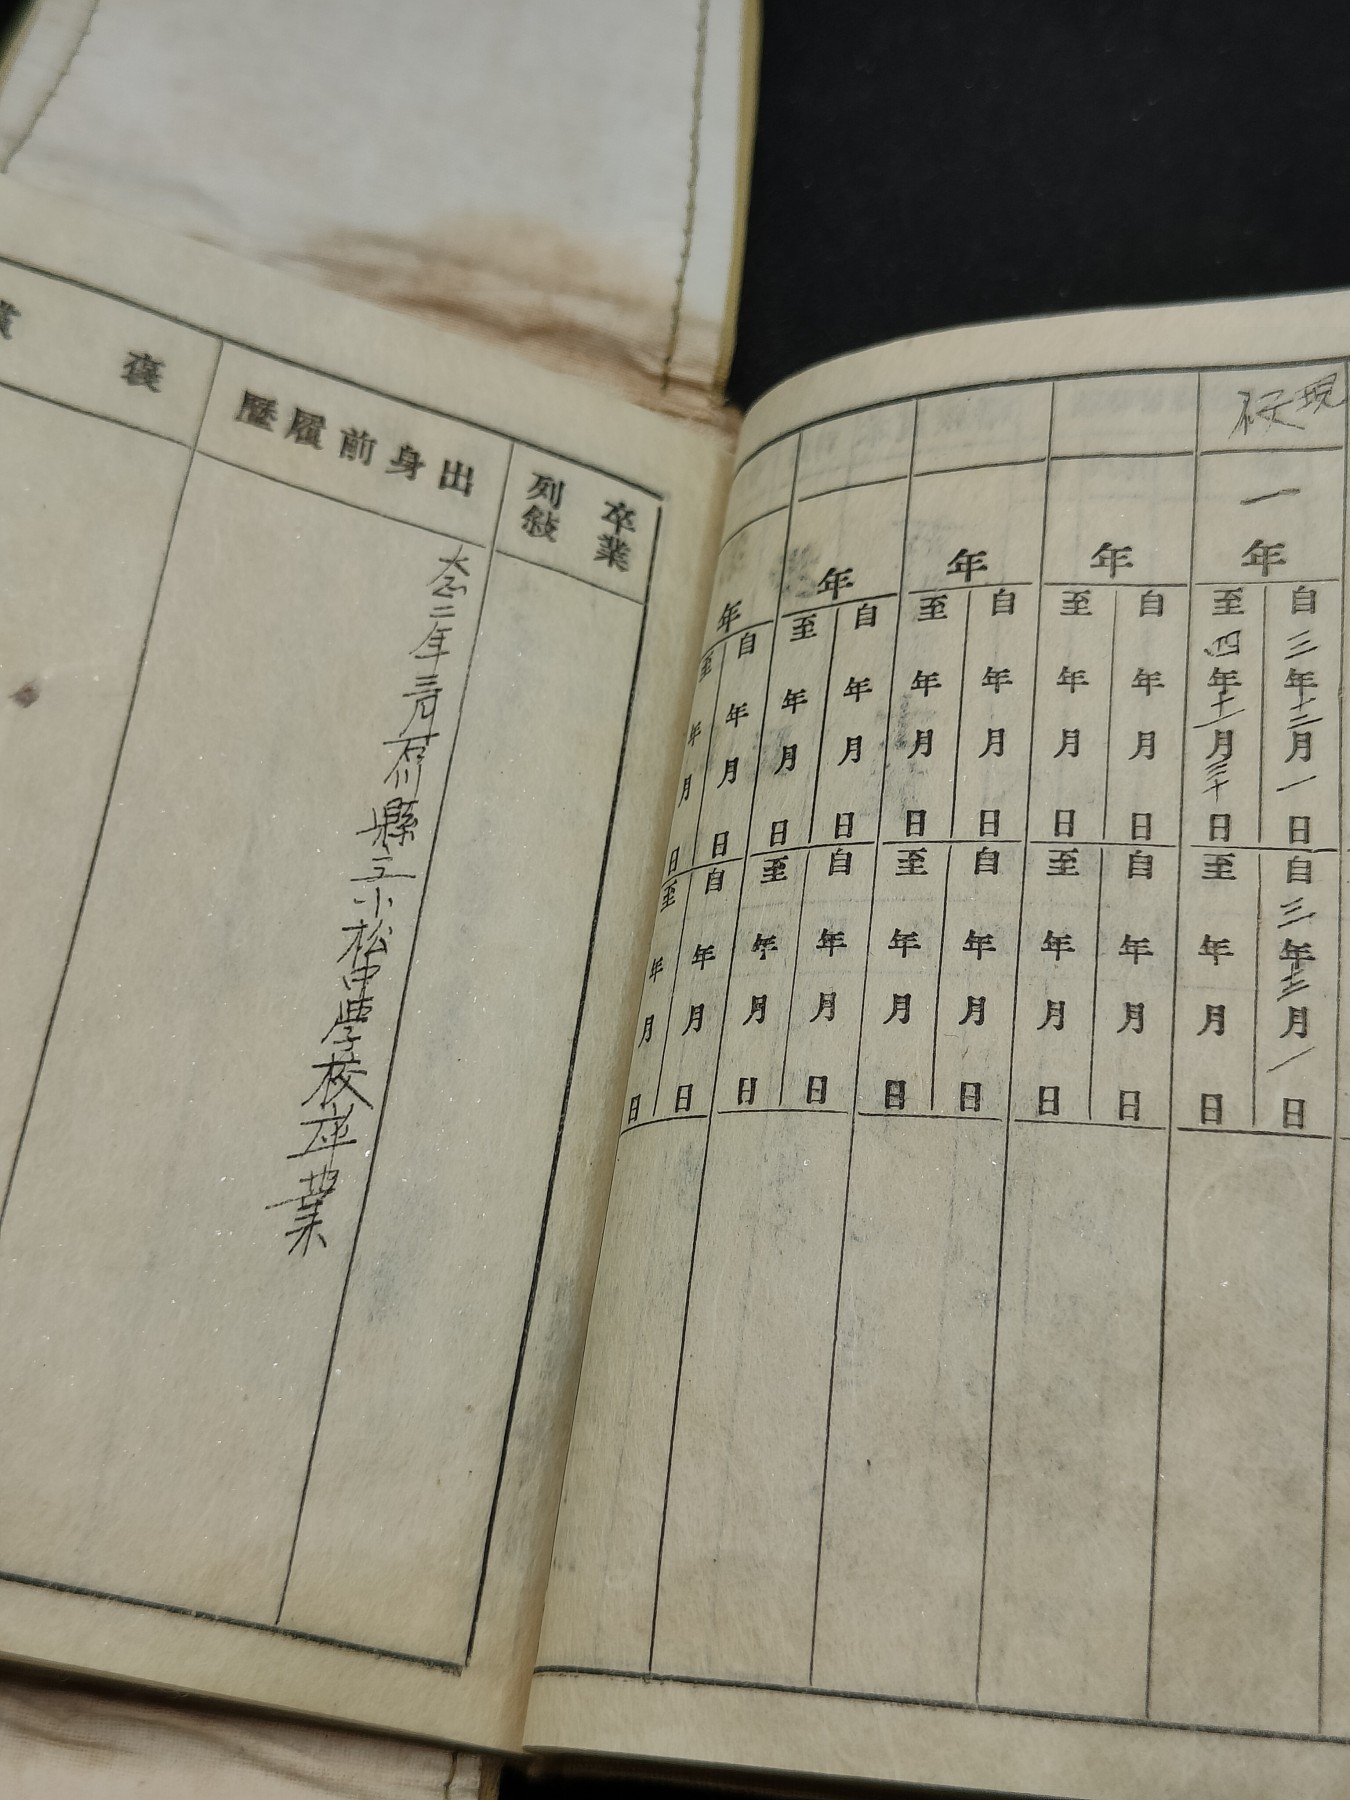 現役
一年
自三年十二月一日
至四年十一月三十日
自三年十二月一日
至 年 月 日
年
自 年 月 日
至 年 月 日
自 年 月 日
至 年 月 日
年
自 年 月 日
至 年 月 日
自 年 月 日
至 年 月 日
年
自 年 月 日
至 年 月 日
自 年 月 日
至 年 月 日
年
自 年 月 日
至 年 月 日
自 年 月 日
至 年 月 日
卒業
列敍
出身前履歷
大正二年三月石川縣立小松中學校卒業
褒賞